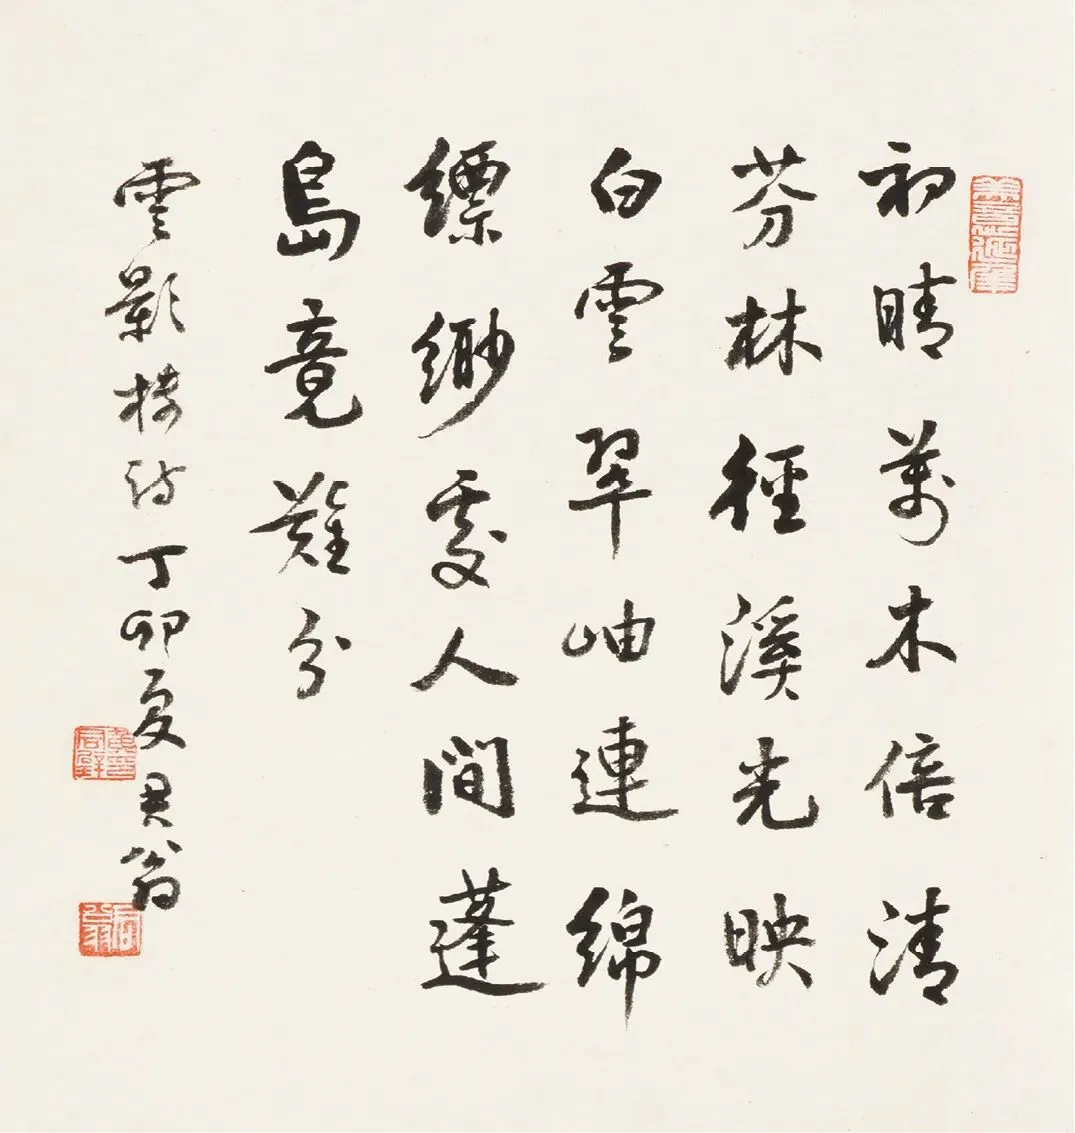 初晴萬木倍清
芬林徑溪光映
白雲翠岫連綿
縹緲處人間蓬
島竟難分
雲影樓詩丁卯夏君翁